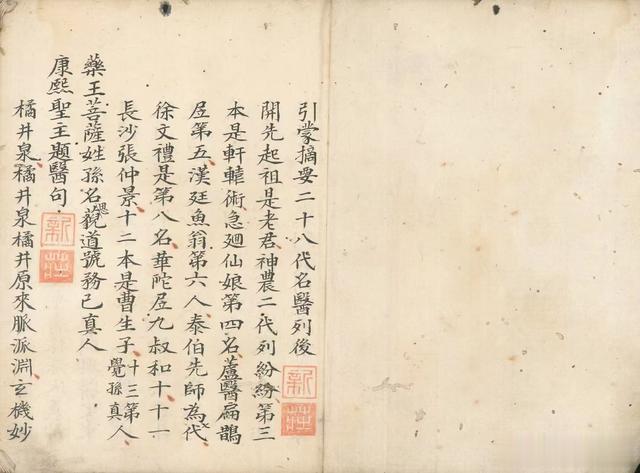 引蒙摘要二十八代名醫列後
開先起祖是老君神農二代列紛紛第三
本是軒轅術急廻仙娘第四名蘆醫扁鵲
居第五漢廷魚翁第六人泰伯先師為七代
徐文禮是第八名華陀居九叔和十十一
長沙張仲景十二本是曹生子十三第一覺孫真人
藥王菩薩姓孫名藐道號務已真人
康熙聖主題醫句
橘井泉橘井泉橘井原來脈派淵玄機妙
新莊
新莊